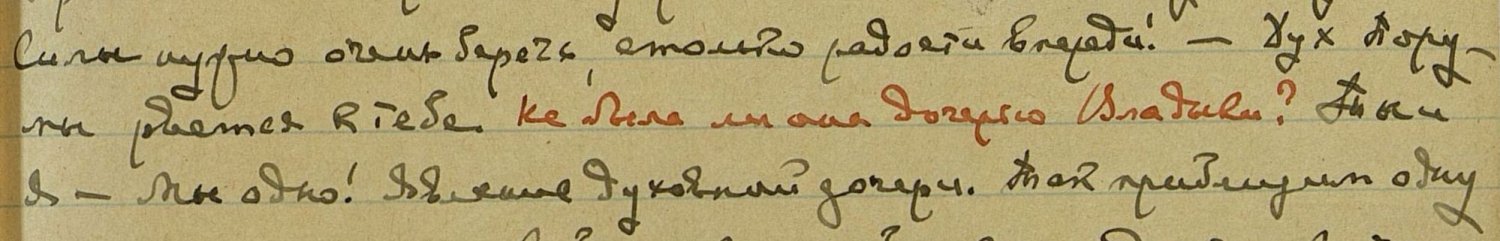 Силы нужно очень беречь, столько радости впереди! — Дух Пору-
мы рвется к тебе. Не была ли она дочерью Владыки? Ты и
Я — Мы одно! Явление духовной дочери. Так приблизим одну